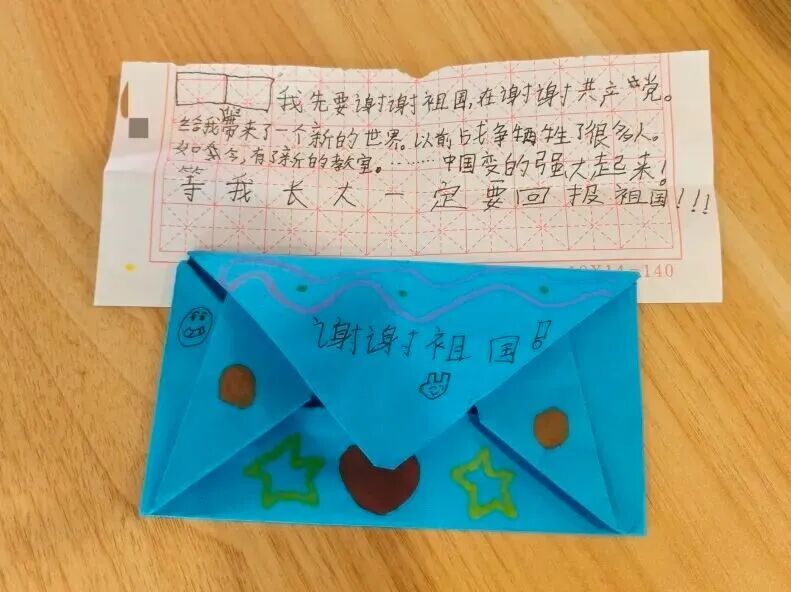 我先要谢谢祖国,在谢谢共产党。
给我带来了一个新的世界。以前战争牺牲了很多人。
如今,有了新的教室。………中国变的强大起来!
等我长大一定要回报祖国!!!
140
谢谢祖国!